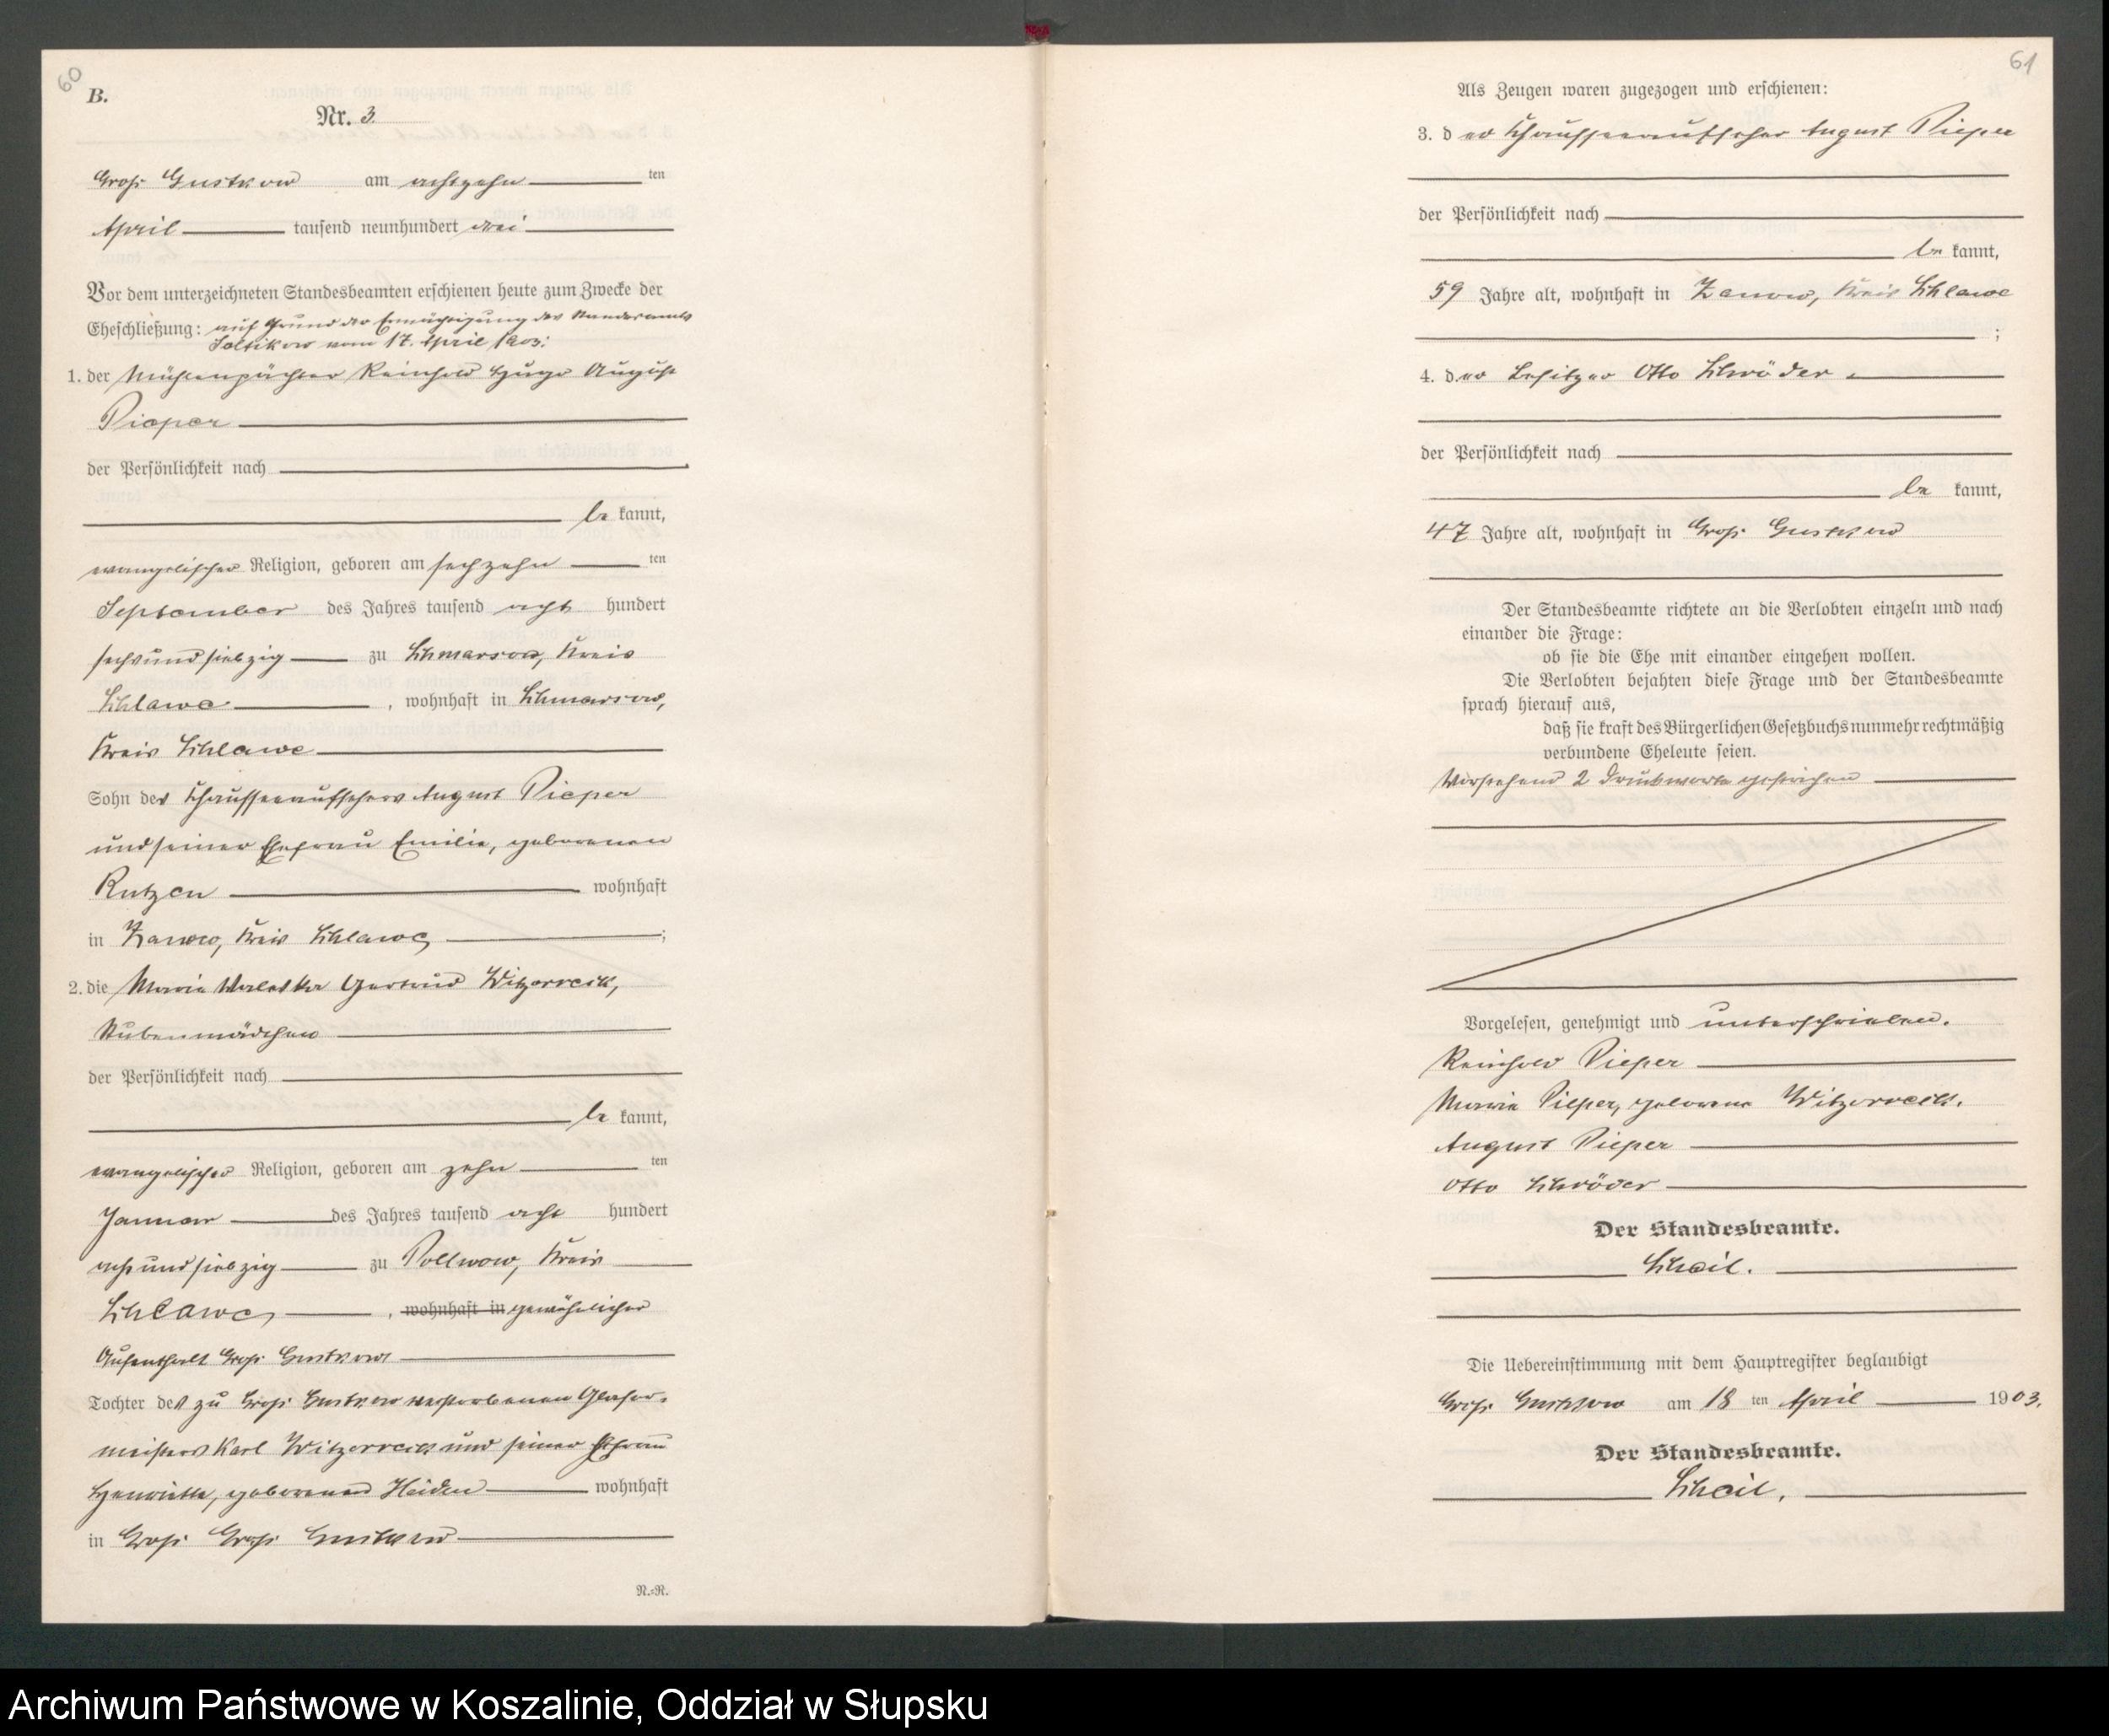 60
B.
Nr. 3
Groß Gustkow am achtzehn ten
April tausend neunhundert drei
Vor dem unterzeichneten Standesbeamten erschienen heute zum Zwecke der
Eheschließung: auf Grund der Ermächtigung des Standesamts
Soltikow vom 17. April 1903:
1. der Mühlenpächter Reinhold Hugo August
Pieper
der Persönlichkeit nach
be kannt,
evangelischer Religion, geboren am sechzehn ten
September des Jahres tausend acht hundert
sechsundsiebzig zu Schmarsow, Kreis
Schlawe, wohnhaft in Schmarsow,
Kreis Schlawe
Sohn des Chausseeaufsehers August Pieper
und seiner Ehefrau Emilie, geborenen
Rutzen wohnhaft
in Zanow, Kreis Schlawe;
2. die Maria Valeska Gertrud Witzerreick,
Stubenmädchen
der Persönlichkeit nach
be kannt,
evangelischer Religion, geboren am zehn ten
Januar des Jahres tausend acht hundert
achtundsiebzig zu Pollnow, Kreis
Schlawe, wohnhaft in gewöhnlicher
Aufenthalt Groß Gustkow
Tochter des zu Groß Gustkow verstorbenen Glaser-
meisters Karl Witzerreick und seiner Ehefrau
Henriette, geborenen Heiden wohnhaft
in Groß Groß Gustkow
N.=R.
61
Als Zeugen waren zugezogen und erschienen:
3. der Chausseeaufseher August Pieper
der Persönlichkeit nach
be kannt,
59 Jahre alt, wohnhaft in Zanow, Kreis Schlawe
;
4. der Besitzer Otto Schröder
der Persönlichkeit nach
be kannt,
47 Jahre alt, wohnhaft in Groß Gustkow
Der Standesbeamte richtete an die Verlobten einzeln und nach
einander die Frage:
ob sie die Ehe mit einander eingehen wollen.
Die Verlobten bejahten diese Frage und der Standesbeamte
sprach hierauf aus,
daß sie kraft des Bürgerlichen Gesetzbuchs nunmehr rechtmäßig
verbundene Eheleute seien.
Vorstehend 2 Druckworte gestrichen
Vorgelesen, genehmigt und unterschrieben.
Reinhold Pieper
Maria Pieper, geborene Witzerreick.
August Pieper
Otto Schröder
Der Standesbeamte.
Scheil.
Die Uebereinstimmung mit dem Hauptregister beglaubigt
Groß Gustkow am 18 ten April 1903.
Der Standesbeamte.
Scheil.
Archiwum Państwowe w Koszalinie, Oddział w Słupsku